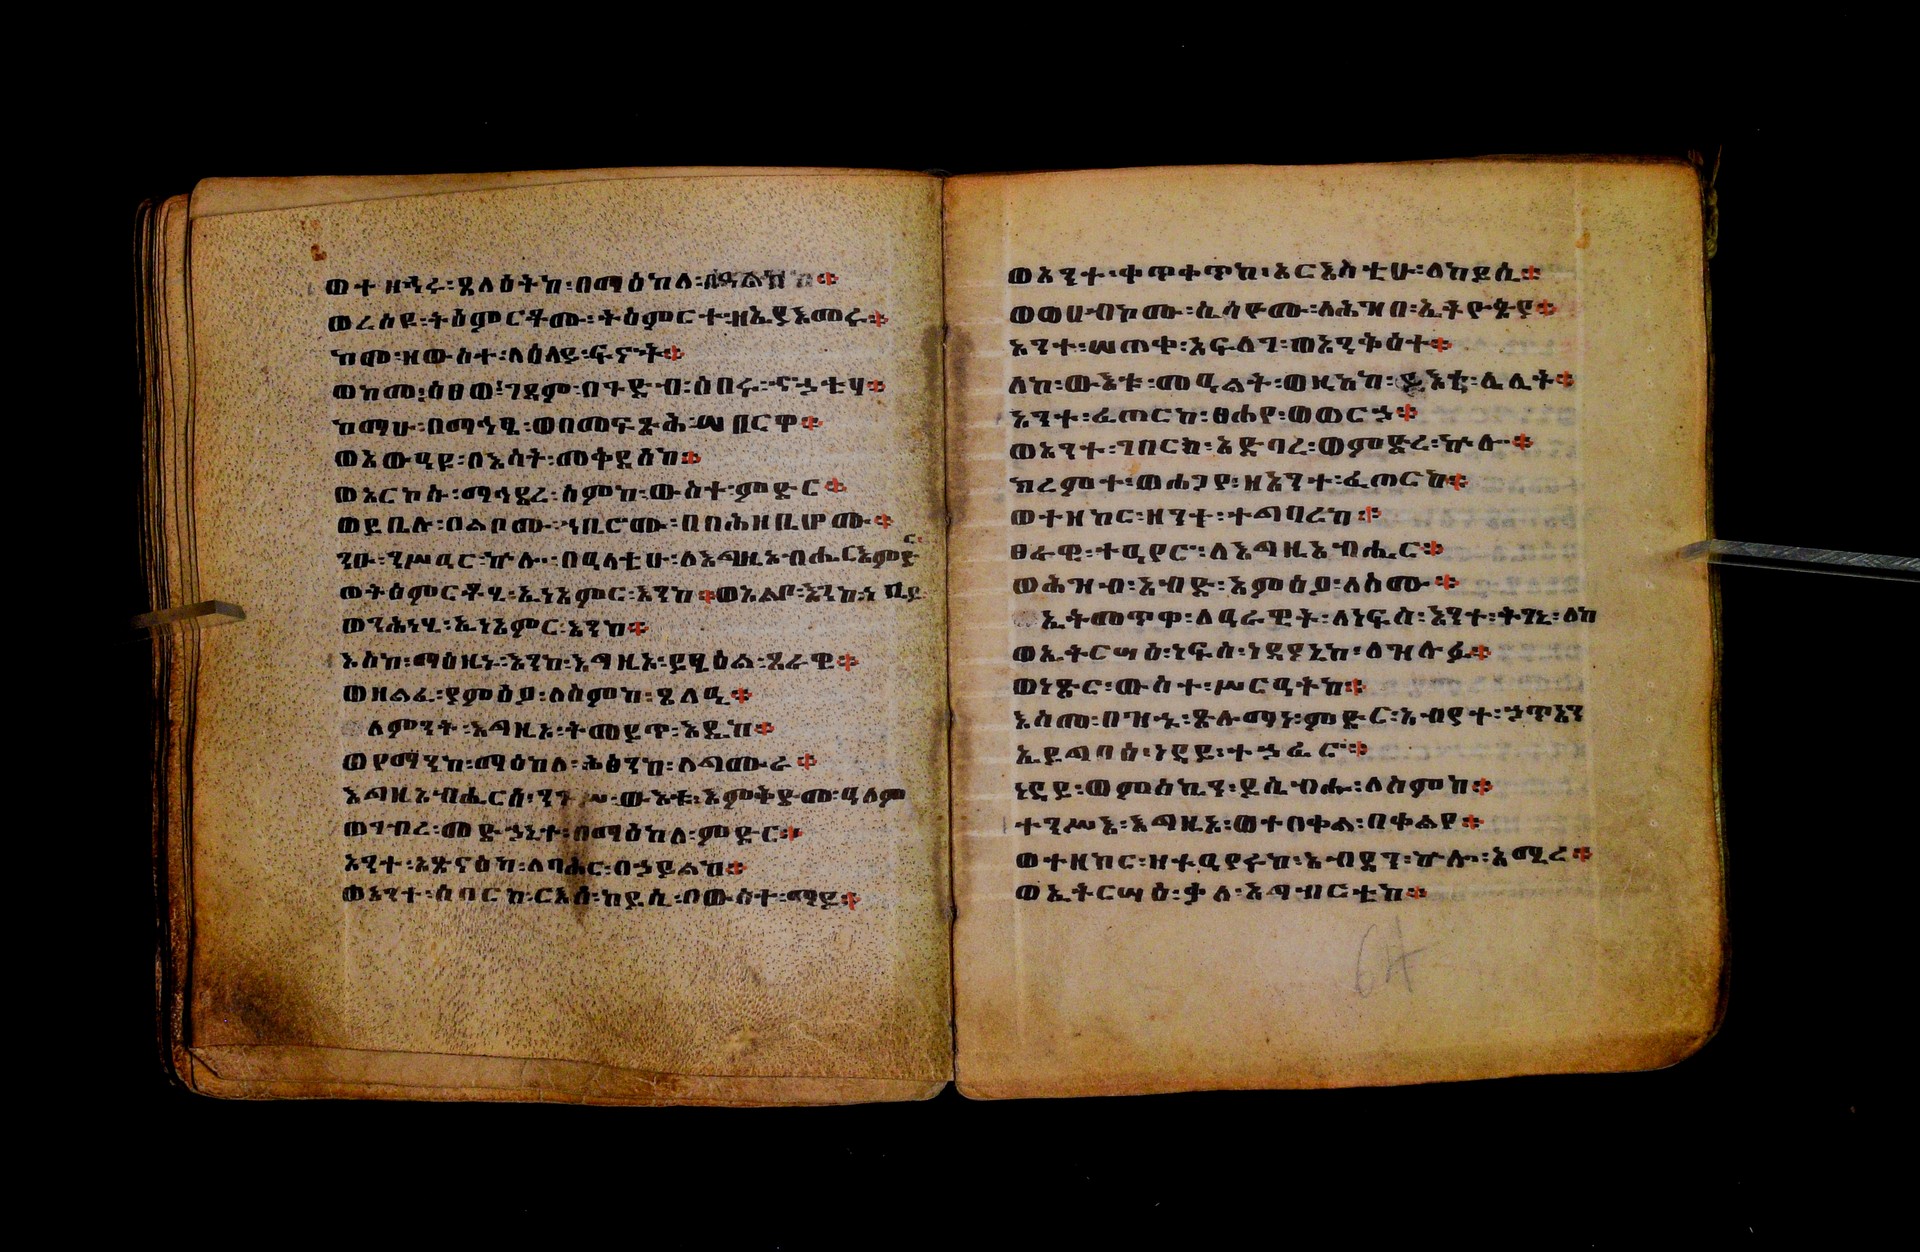 ወተዘኀሩ፡ጸላዕትከ፡በማዕከለ፡በዓልከ።
ወረሰዩ፡ትዕምርቶሙ፡ትዕምርተ፡ዘኢያእመሩ።
ከመ፡ዘውስተ፡ላዕለይ፡ፍኖት።
ወከመ፡ዕፀወ፡ገዳም፡በጉድብ፡ሰበሩ፡ኆኃቲሃ።
ከማሁ፡በማኅፄ፡ወበመፍጽሕ፡ሠበርዋ።
ወአውዓዩ፡በእሳት፡መቅደሰከ።
ወአርኰሱ፡ማኅደረ፡ስምከ፡ውስተ፡ምድር።
ወይቤሉ፡በልቦሙ፡ኅቢሮሙ፡በበሕዘቢሆሙ።
ንዑ፡ንሥዓር፡ኵሎ፡በዓላቲሁ፡ለእግዚአብሔር፡እምድር
ወትዕምርቶሂ፡ኢነአምር፡እንከ።ወአልቦ፡እንከ፡ነቢይ
ወንሕነሂ፡ኢነአምር፡እንከ።
እስከ፡ማዕዜኑ፡እንከ፡እግዚኦ፡ይፄዕል፡ጸራዊ።
ወዘልፈ፡ያምዕዖ፡ለስምከ፡ጸላዒ።
ለምንት፡እግዚኦ፡ትመይጥ፡እዴከ።
ወየማንከ፡ማዕከለ፡ሕፅንከ፡ለግሙራ።
እግዚአብሔርሰ፡ንጉሥ፡ውእቱ፡እምቅድመ፡ዓለም
ወገብረ፡መድኃኒተ፡በማዕከለ፡ምድር።
አንተ፡አጽናዕካ፡ለባሕር፡በኃይልከ።
ወአንተ፡ሰበርከ፡ርእሰ፡ከይሲ፡በውስተ፡ማይ።
ወአንተ፡ቀጥቀጥከ፡አርእስቲሁ፡ለከይሲ።
ወወሀብኮሙ፡ሲሳዮሙ፡ለሕዝበ፡ኢትዮጵያ።
አንተ፡ሠጠቀ፡አፍላገ፡ወአንቅዕተ።
ለከ፡ውእቱ፡መዓልት፡ወዚአከ፡ይእቲ፡ሌሊት።
አንተ፡ፈጠርከ፡ፀሐየ፡ወወርኃ።
ወአንተ፡ገበርከ፡አድባረ፡ወምድረ፡ኵሎ።
ክረምተ፡ወሐጋየ፡ዘአንተ፡ፈጠርከ።
ወተዘከር፡ዘንተ፡ተግባረከ።
ፀራዊ፡ተዓየር፡ለእግዚአብሔር።
ወሕዝብ፡አብድ፡አምዕዖ፡ለስሙ።
ኢትመጥዋ፡ለዓራዊት፡ለነፍስ፡እንተ፡ትገኒ፡ለከ
ወኢትርሣዕ፡ነፍሰ፡ነዳያኒከ፡ለዝሉፉ።
ወነጽር፡ውስተ፡ሥርዓትከ።
እስመ፡በዝኁ፡ጽሉማነ፡ምድር፡አብያተ፡ኃጥአን
ኢይግባዕ፡ነዳይ፡ተኃፊሮ።
ነዳይ፡ወምስኪን፡ይሴብሑ፡ለስምከ።
ተንሥእ፡እግዚኦ፡ወተበቀል፡በቀልየ።
ወተዘከር፡ዘተዓየሩከ፡አብዳን፡ኵሎ፡አሚረ።
ወኢትርሣዕ፡ቃለ፡አግብርቲከ።
64